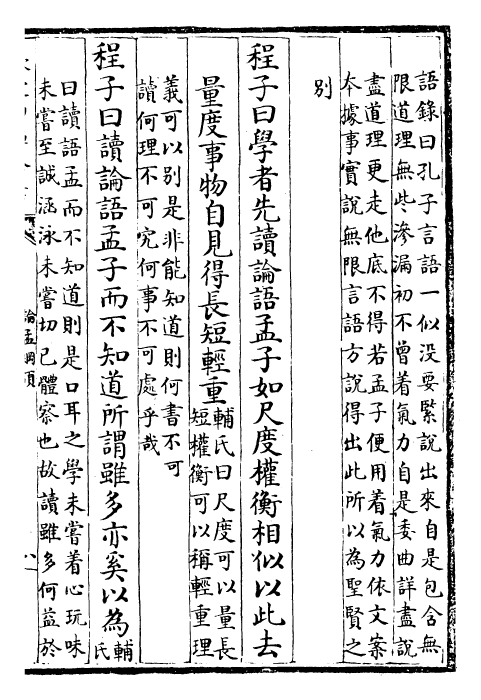 語錄曰孔子言語一似没要緊說出來自是包含無
限道理無些滲漏初不曾着氣力自是委曲詳盡說
盡道理更走他底不得若孟子便用着氣力依文案
本據事實說無限言語方說得出此所以為聖賢之
别
程子曰學者先讀論語孟子如尺度權衡相似以此去
量度事物自見得長短輕重
輔氏曰尺度可以量長
短權衡可以稱輕重理
義可以别是非能知道則何書不可
讀何理不可究何事不可處乎哉
程子曰讀論語孟子而不知道所謂雖多亦奚以為
輔
氏
曰讀語孟而不知道則是口耳之學未嘗着心玩味
未嘗至誠涵泳未嘗切己體察也故讀雖多何益於
論孟綱領
八